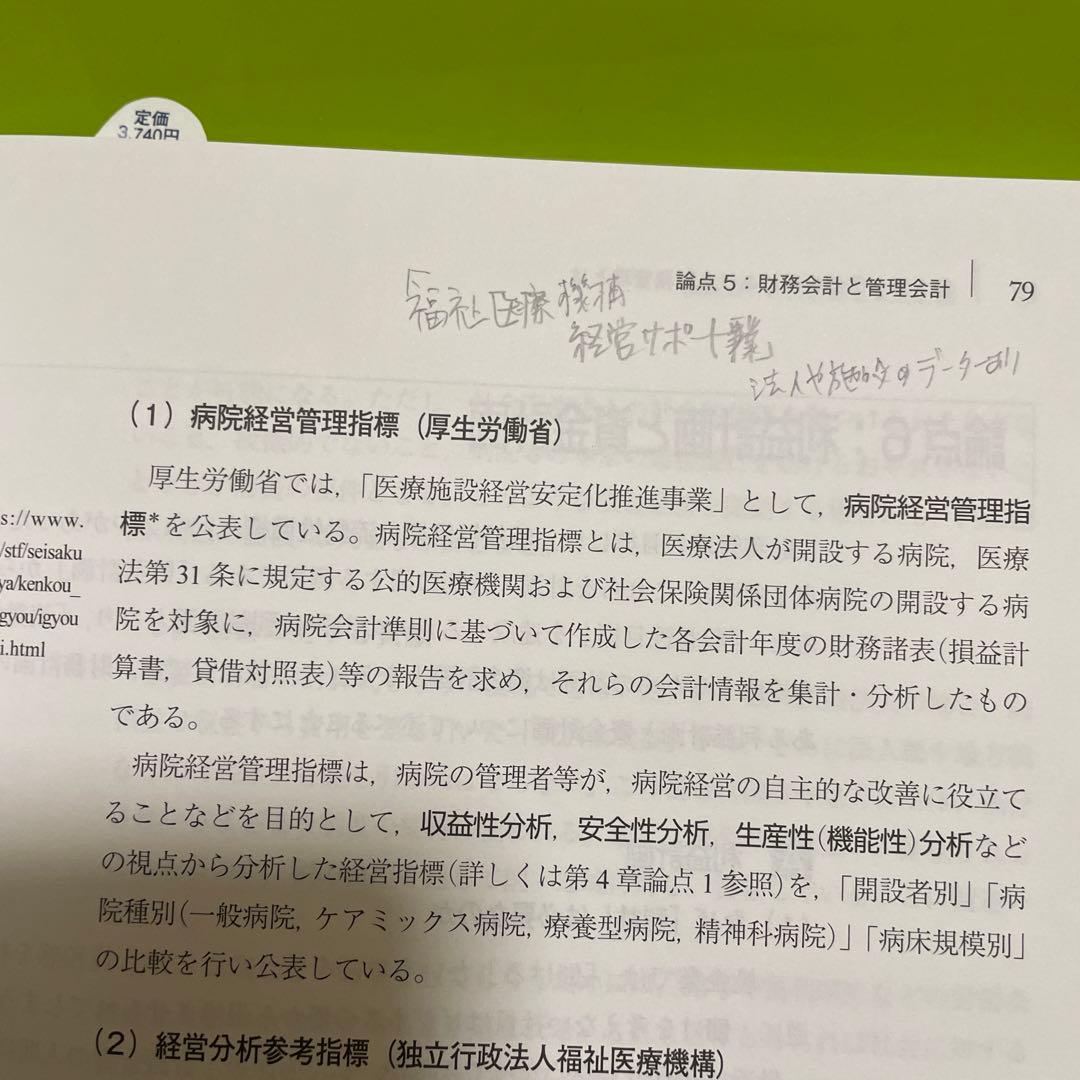 定価
3,740円
論点5：財務会計と管理会計 79
「福祉医療機構
経営サポート事業」
法人や施設のデータあり
（1）病院経営管理指標（厚生労働省）
厚生労働省では，「医療施設経営安定化推進事業」として，病院経営管理指
標*を公表している。病院経営管理指標とは，医療法人が開設する病院，医療
法第31条に規定する公的医療機関および社会保険関係団体病院の開設する病
院を対象に，病院会計準則に基づいて作成した各会計年度の財務諸表（損益計
算書，貸借対照表）等の報告を求め，それらの会計情報を集計・分析したもの
である。
s://www.
/stf/seisaku
ya/kenkou_
gyou/igyou
i.html
病院経営管理指標は，病院の管理者等が，病院経営の自主的な改善に役立て
ることなどを目的として，収益性分析，安全性分析，生産性（機能性）分析など
の視点から分析した経営指標（詳しくは第4章論点1参照）を，「開設者別」「病
院種別（一般病院，ケアミックス病院，療養型病院，精神科病院）」「病床規模別」
の比較を行い公表している。
（2）経営分析参考指標（独立行政法人福祉医療機構）